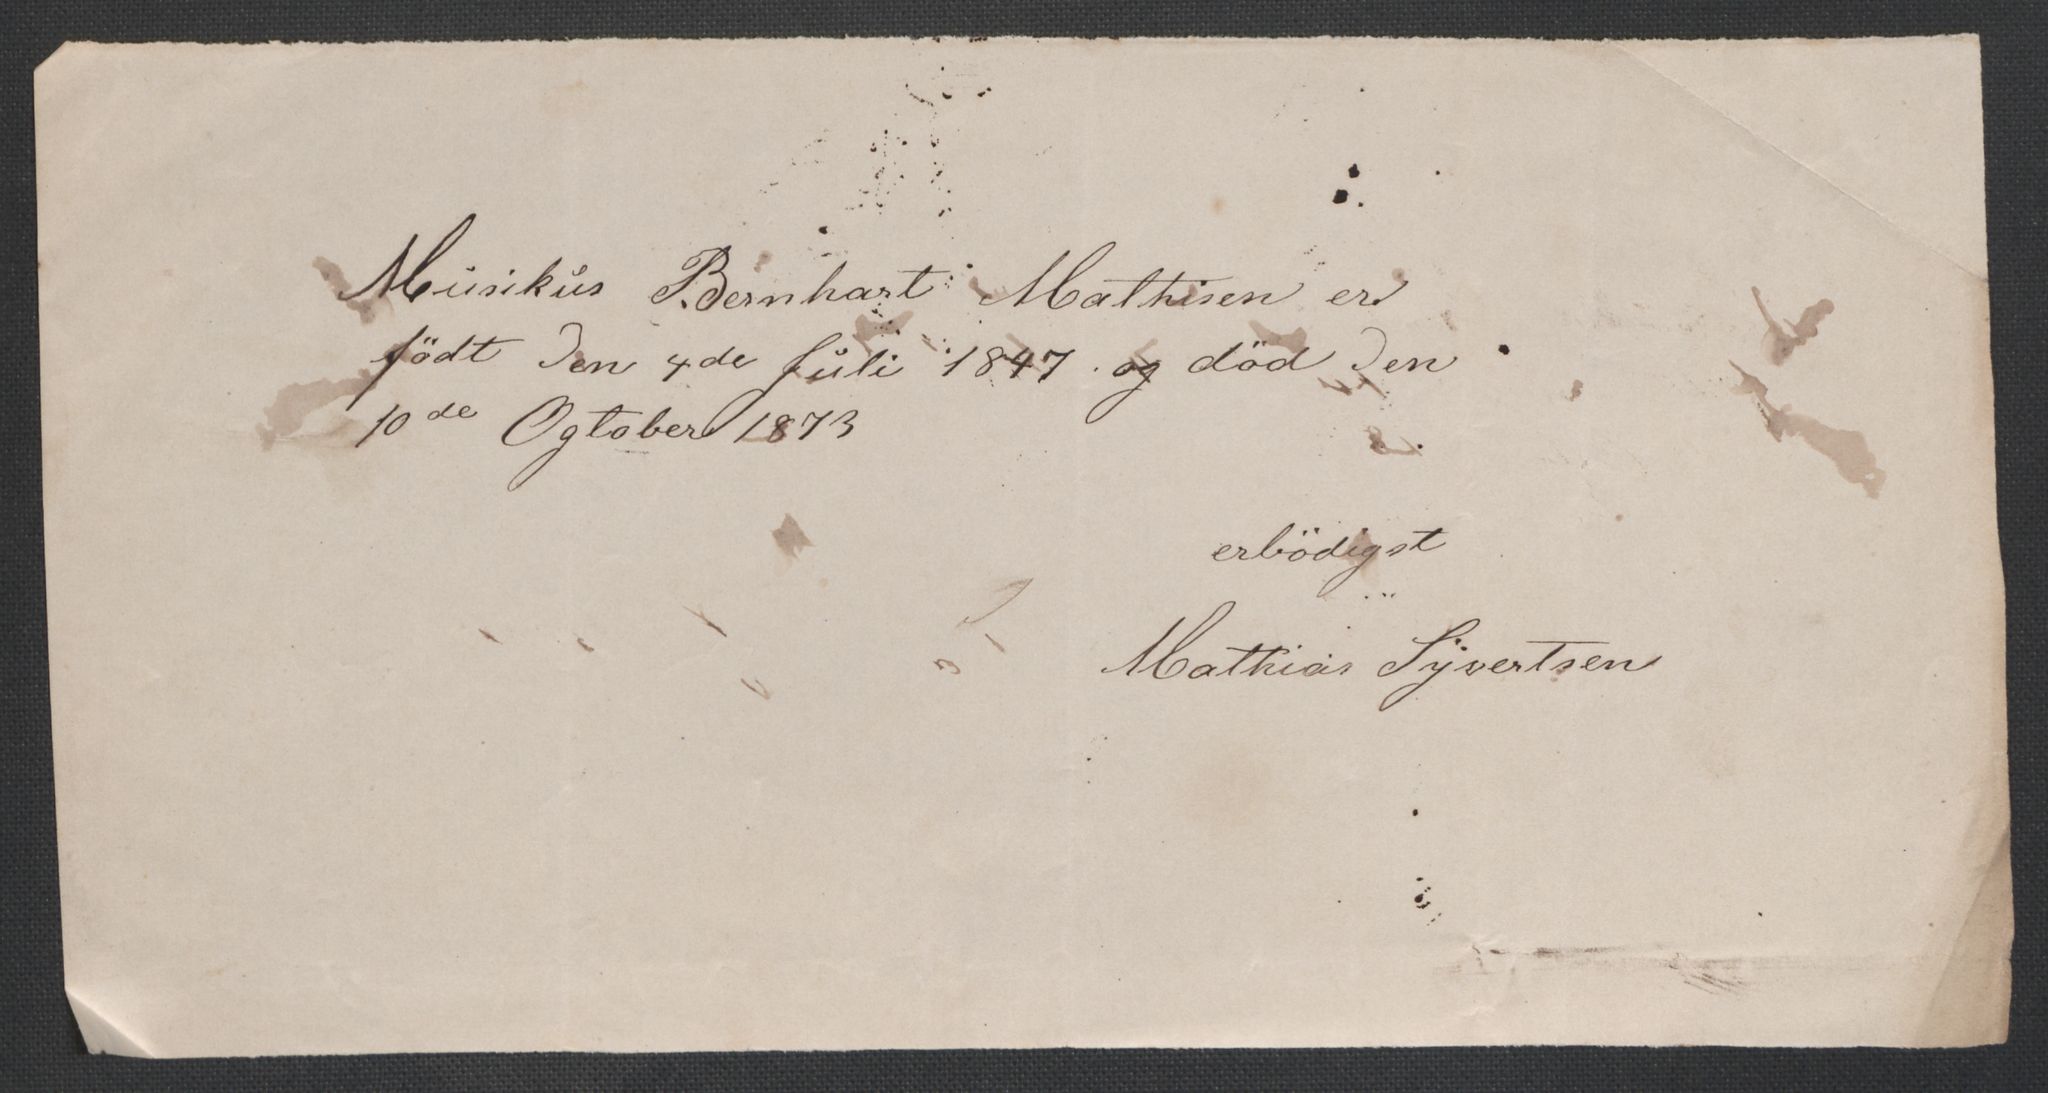 Musikus Bernhart Mathisen er
födt den 4de Juli 1847 og död den
10de Ogtober 1873
erbödigst
Mathias Syvertsen